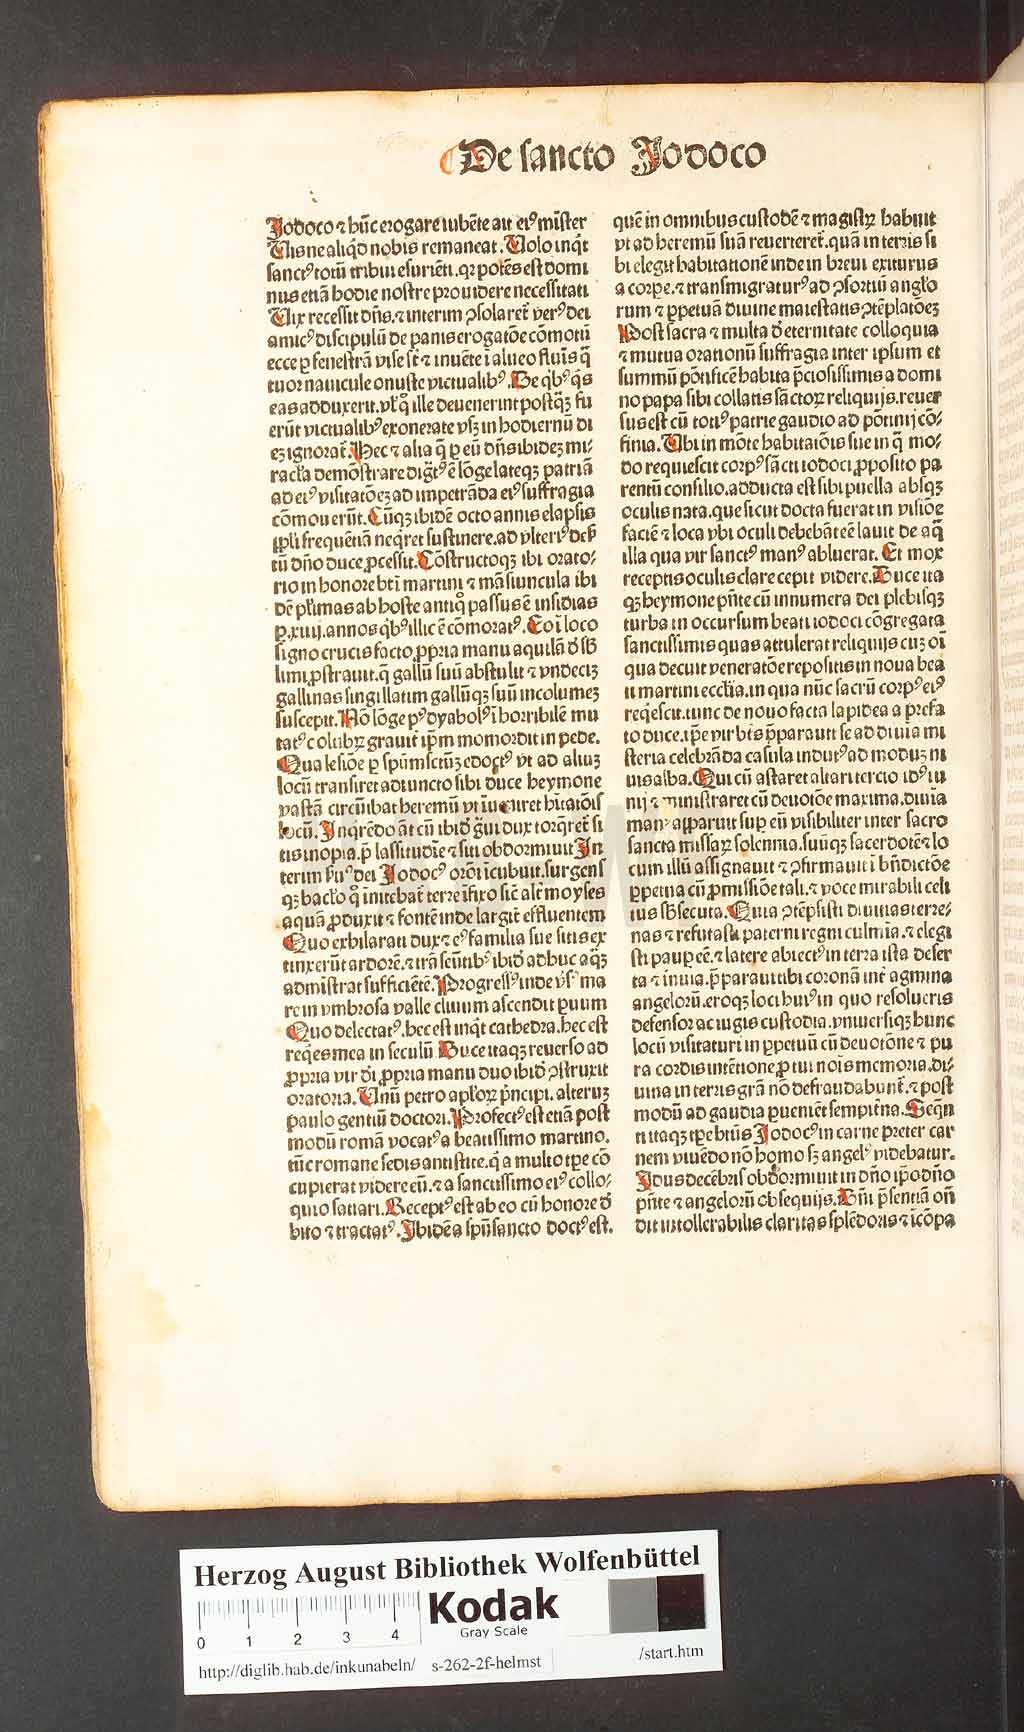 De sancto Jodoco
Jodoco ⁊ hūc erogare iubēte ait eiꝰ mīster
Visne aliqd nobis remaneat. Volo inqt
sanctꝰ totū tribui esuriēti. qr potēs est domi
nus etiā hodie nostre prouidere necessitati
Vix recessit dn̄s. ⁊ interim ꝯsolaret verꝰ dei
amicꝰ discipulū de panis erogatōe cōmotū
ecce ꝑ fenestrā vise st ⁊ inuēte i alueo fluīs q̄
tuor nauicule onuste victualibꝰ. De qbꝰ qs
eas adduxerit. vl quo ille deuenerint postqꝫ fu
erūt victualibꝰ exonerate vsqꝫ in hodiernū di
eꝫ ignorat. Hec ⁊ alia q̄ ꝑ eū dn̄s ibideꝫ mi-
racla demōstrare dignatꝰ ē lōge lateqꝫ patriā
ad eiꝰ visitatōeꝫ ad impetrāda eiꝰ suffragia
cōmouerūt. Cūqꝫ ibidē octo annis elapsis
ppli frequētiā neqret sustinere. ad vlteriꝰ deser
tū dn̄o duce ꝓcessit. Cōstructoqꝫ ibi orato-
rio in honore bti martini ⁊ māsiuncula ibi
dē plimas ab hoste antiquo passus ē insidias
ꝑ .xiiij. annos qbꝰ illic ē cōmoratꝰ. Eo i loco
signo crucis facto ꝓpria manu aquilā d sb
limi ꝓstrauit. q̄ gallū suū abstulit ⁊ vndeciꝫ
gallinas singillatim gallūqꝫ suū incolumeꝫ
suscepit. Nō lōge pꝰ dyabolꝰ i horribilē mu
tatꝰ colubꝝ grauit ipm momordit in pede.
Qua lesiōe ꝑ spūmsctūꝫ edoctꝰ vt ad aliuꝫ
locū transiret adiuncto sibi duce heymone
vastā circūibat heremū vt inueniret hitatōis
locū. Inqrēdo at cū ibid gui dux torqret si
tis inopia. p̄ lassitudīe ⁊ siti obdormiuit In
terim fuꝰ dei Jodocꝰ orōi icubuit. surgens
qꝫ baclo quo initebat terre ifixo sic alt moyses
aquā ꝓduxit ⁊ fontē inde largit effluentem
Quo exhilarati dux ⁊ eꝰ familia sue sitis ex
tinxerūt ardorē. ⁊ trāseūtibꝰ ibid adhuc aqꝫ
admistrat sufficiētē. Progressꝰ inde vsꝰ ma
re in vmbrosa valle cliuum ascendit ꝑuum
Quo delectatꝰ. hec est inqt cathedra. hec est
reqes mea in seculū Duce itaqꝫ reuerso ad
ꝓpria vir di ꝓpria manu duo ibid ꝯstruxit
oratoria. Vnū petro aploꝝ pncipi. alteruꝫ
paulo gentiū doctori. Profectꝰ est etiā post
modū romā vocatꝰ a beatissimo martino.
tūc romane sedis antistite. q̄ a multo tpe cō
cupierat videre eū. ⁊ a sanctissimo eiꝰ collo-
quio satiari. Receptꝰ est ab eo cū honore d
bito ⁊ tractatꝰ. Ibidē a spū sancto doctꝰ est.
quē in omnibus custodē ⁊ magistꝝ habuit
vt ad heremū suā reuerteret. quā in terris si
bi elegit habitationē inde in breui exiturus
a corpe. ⁊ transmigraturꝰ ad ꝯsortiū anglo
rum ⁊ ꝑpetuā diuine maiestatis ꝯtēplatōeꝫ
Post sacra ⁊ multa d eternitate colloquia
⁊ mutua orationū suffragia inter ipsum et
summū pōtificē habita p̄ciosissimis a domi
no papa sibi collatis sāctoꝝ reliquijs. reuer
sus est cū totiꝰ patrie gaudio ad pōtinij cō-
finia. Vbi in mōte habitatōis sue in q̄ mo-
do requiescit corpꝰ sācti iodoci ꝓposito pa
rentū consilio. adducta est sibi puella absqꝫ
oculis nata. que sicut docta fuerat in visiōe
faciē ⁊ loca vbi oculi debebāt eē lauit de aq̄
illa qua vir sanctꝰ manꝰ abluerat. Et mox
receptis oculis clare cepit videre. Duce ita
qꝫ heymone pn̄te cū innumera dei plebisqꝫ
turba in occursum beati iodoci cōgregata
sanctissimis quas attulerat reliquijs cuꝫ oī
qua decuit veneratōe repositis in noua bea
ti martini ecclia. in qua nūc sacrū corpꝰ eiꝰ
reqescit. tunc de nouo facta lapidea a prefa
to duce. ipe vir btꝰ p̄parauit se ad diuīa mi
steria celebrāda casula indutꝰ ad moduꝫ ni
uis alba. Qui cū astaret altari tercio idꝰ iu
nij ⁊ ministraret cū deuotōe maxima. diuīa
manꝰ apparuit sup eū visibiliter inter sacro
sancta missaꝝ solennia. suūqꝫ sacerdotē ⁊ lo
cum illū assignauit ⁊ ꝯfirmauit i bn̄dictōe
ꝑpetua cū ꝓmissiōe tali. ⁊ voce mirabili celi
tus sbsecuta. Quia ꝯtēpsisti diuitias terre-
nas ⁊ refutasti paterni regni culmīa. ⁊ elegi
sti pauꝑ eē. ⁊ latere abiectꝰ in terra ista deser
ta ⁊ inuia. p̄paraui tibi coronā int agmina
angeloꝝ. eroqꝫ loci huiꝰ in quo resolueris
defensor ac iugis custodia. vniuersiqꝫ hunc
locū visitaturi in ꝑpetuū cū deuotōne ⁊ pu
ra cordis intētione ꝓ tui nois memoria. di-
uina in terris grā nō defraudabunt. ⁊ post
modū ad gaudia ꝑuenient sempitna. Seqn̄
ti itaqꝫ tpe btūs Jodocꝰ in carne preter car
nem viuēdo nō homo sꝫ angelꝰ videbatur.
Idus decēbris obdormiuit in dn̄o ipo dn̄o
pn̄te ⁊ angeloꝝ obsequijs. Dn̄i p̄sentiā on̄
dit intollerabilis claritas splēdoris ⁊ icōpa
Herzog August Bibliothek Wolfenbüttel
0 1 2 3 4
Kodak
Gray Scale
http://diglib.hab.de/inkunabeln/ s-262-2f-helmst /start.htm